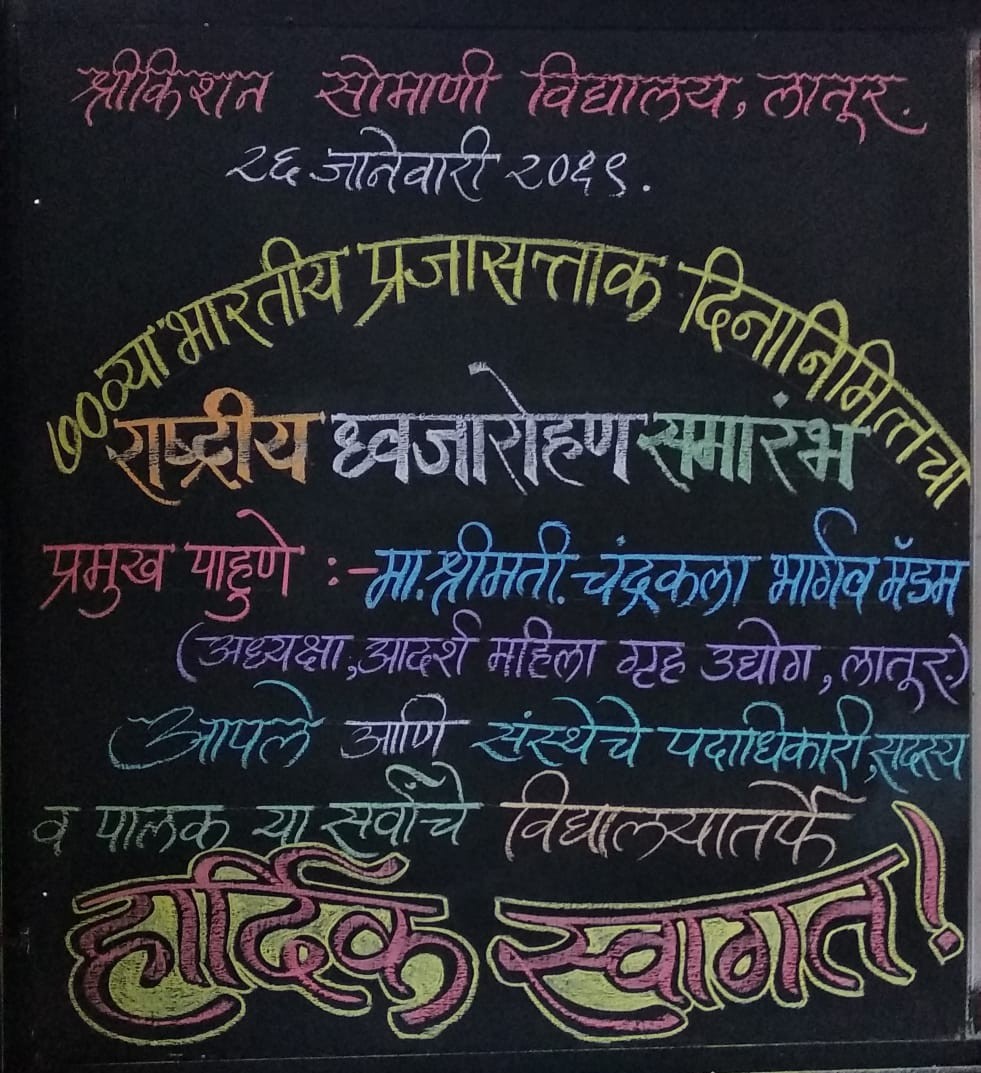 श्रीकिशन सोमाणी विद्यालय, लातूर.
२६ जानेवारी २०१९.
७०व्या भारतीय प्रजासत्ताक दिनानिमित्तचा
राष्ट्रीय ध्वजारोहण समारंभ
प्रमुख पाहुणे :- मा. श्रीमती. चंद्रकला भार्गव मॅडम
(अध्यक्षा, आदर्श महिला गृह उद्योग, लातूर.)
आपले आणि संस्थेचे पदाधिकारी, सदस्य
व पालक या सर्वांचे विद्यालयातर्फे
हार्दिक स्वागत!